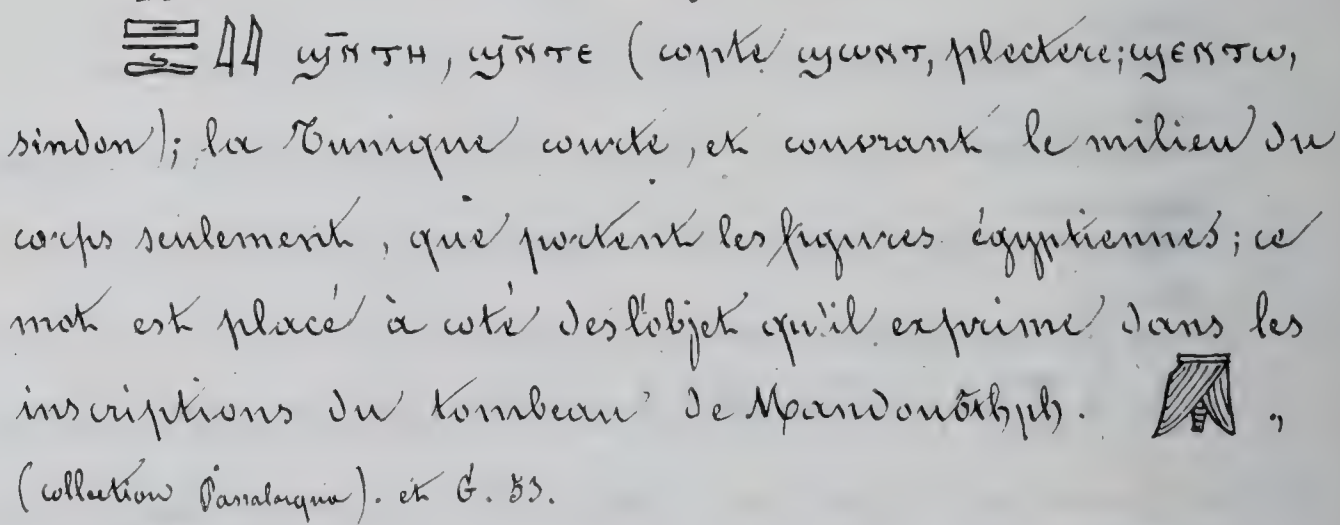 ϣⲛ̄ⲧⲏ, ϣⲛ̄ⲧⲉ (copte ϣⲱⲛⲧ, plectere; ϣⲉⲛⲧⲱ,
sindon); la Tunique courte, et couvrant le milieu du
corps seulement, que portent les figures égyptiennes; ce
mot est placé à coté des l'objet qu'il exprime dans les
inscriptions du tombeau de Mandouôthph. ,
(collection Passalacqua). et G. 53.